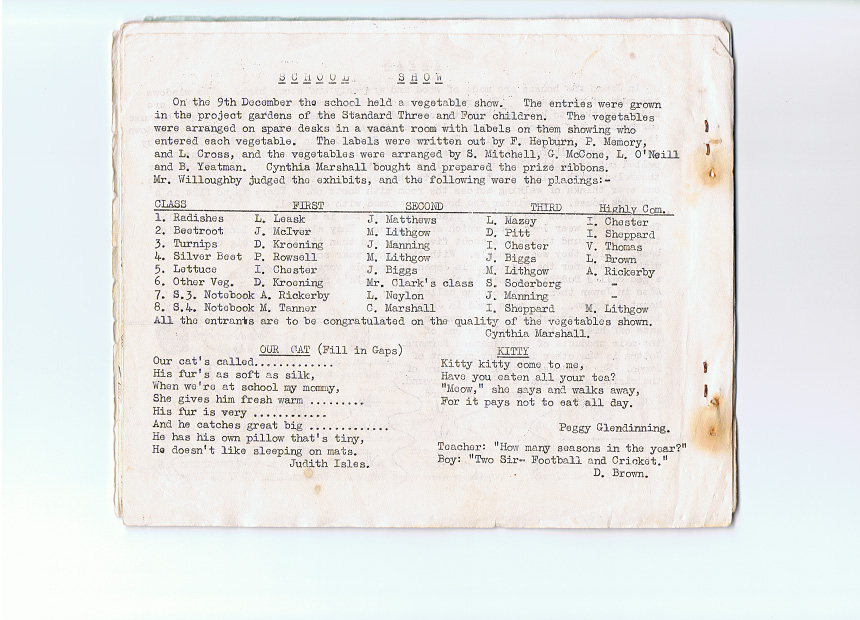 SCHOOL SHOW
On the 9th December the school held a vegetable show. The entries were grown
in the project gardens of the Standard Three and Four children. The vegetables
were arranged on spare desks in a vacant room with labels on them showing who
entered each vegetable. The labels were written out by F. Hepburn, P. Memory,
and L. Cross, and the vegetables were arranged by S. Mitchell, G. McCone, L. O'Neill
and B. Yeatman. Cynthia Marshall bought and prepared the prize ribbons.
Mr. Willoughby judged the exhibits, and the following were the placings:-
CLASS FIRST SECOND THIRD Highly Com.
1. Radishes L. Leask J. Matthews L. Mazey I. Chester
2. Beetroot J. McIver M. Lithgow D. Pitt I. Sheppard
3. Turnips D. Kroening J. Manning I. Chester V. Thomas
4. Silver Beet P. Rowsell M. Lithgow J. Biggs L. Brown
5. Lettuce I. Chester J. Biggs M. Lithgow A. Rickerby
6. Other Veg. D. Kroening Mr. Clark's class S. Soderberg -
7. S.3. Notebook A. Rickerby L. Neylon J. Manning -
8. S.4. Notebook M. Tanner C. Marshall I. Sheppard M. Lithgow
All the entrants are to be congratulated on the quality of the vegetables shown.
Cynthia Marshall.
OUR CAT (Fill in Gaps)
Our cat's called.............
His fur's as soft as silk,
When we're at school my mommy,
She gives him fresh warm .........
His fur is very ............
And he catches great big .............
He has his own pillow that's tiny,
He doesn't like sleeping on mats.
Judith Isles.
KITTY
Kitty kitty come to me,
Have you eaten all your tea?
"Meow," she says and walks away,
For it pays not to eat all day.
Peggy Glendinning.
Teacher: "How many seasons in the year?"
Boy: "Two Sir- Football and Cricket."
D. Brown.